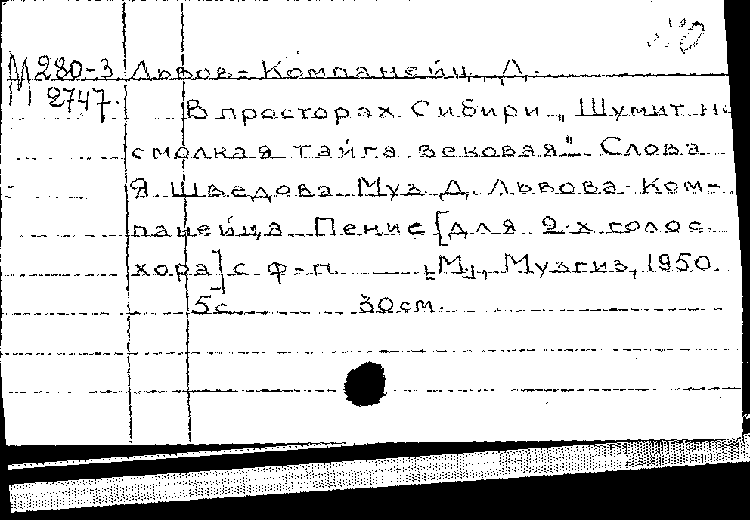 М 280-3 Львов-Компанеец, Д.
2747.
В просторах Сибири. „Шумит не
смолкая тайга вековая". Слова
Я. Шведова. Муз. Д. Львова-Ком-
панейца. Пение [для 2-х голос.
хора] с ф-п. [М], Музгиз, 1950.
5с. 30см.